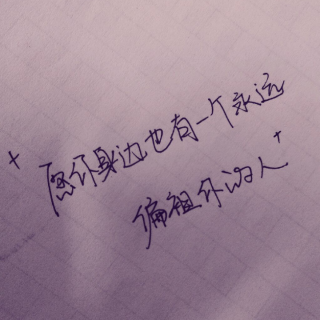 愿你身边也有一个永远
偏袒你的人